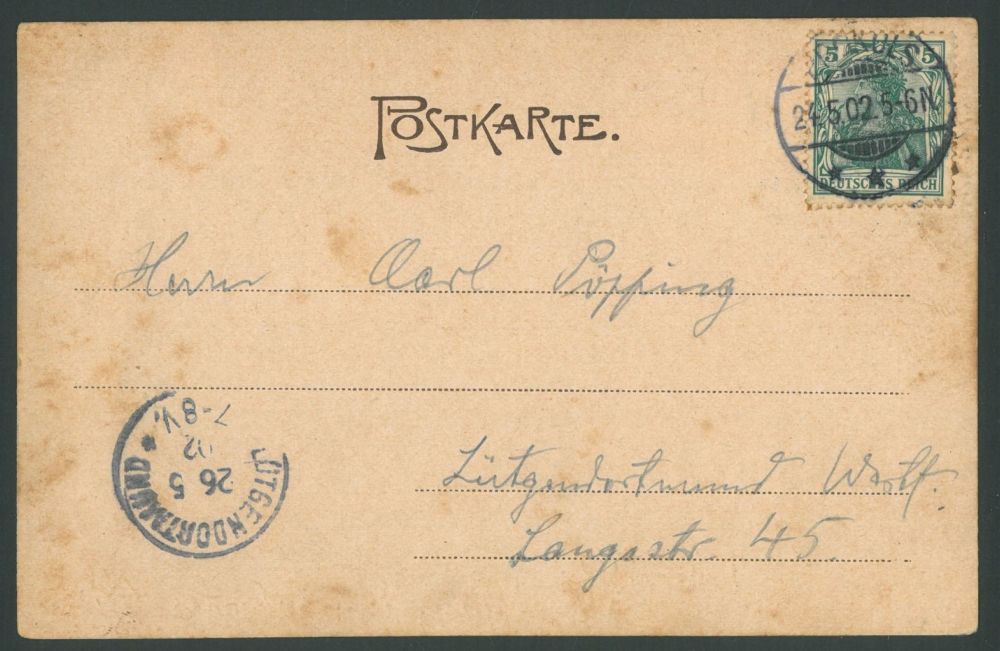 POSTKARTE.
5 5
24.5.02.5-6N
DEUTSCHES REICH
Herrn Carl Pöpping
Lütgendortmund Westf.
Langestr. 45.
LÜTGENDORTMUND
26 5
02
7-8V.